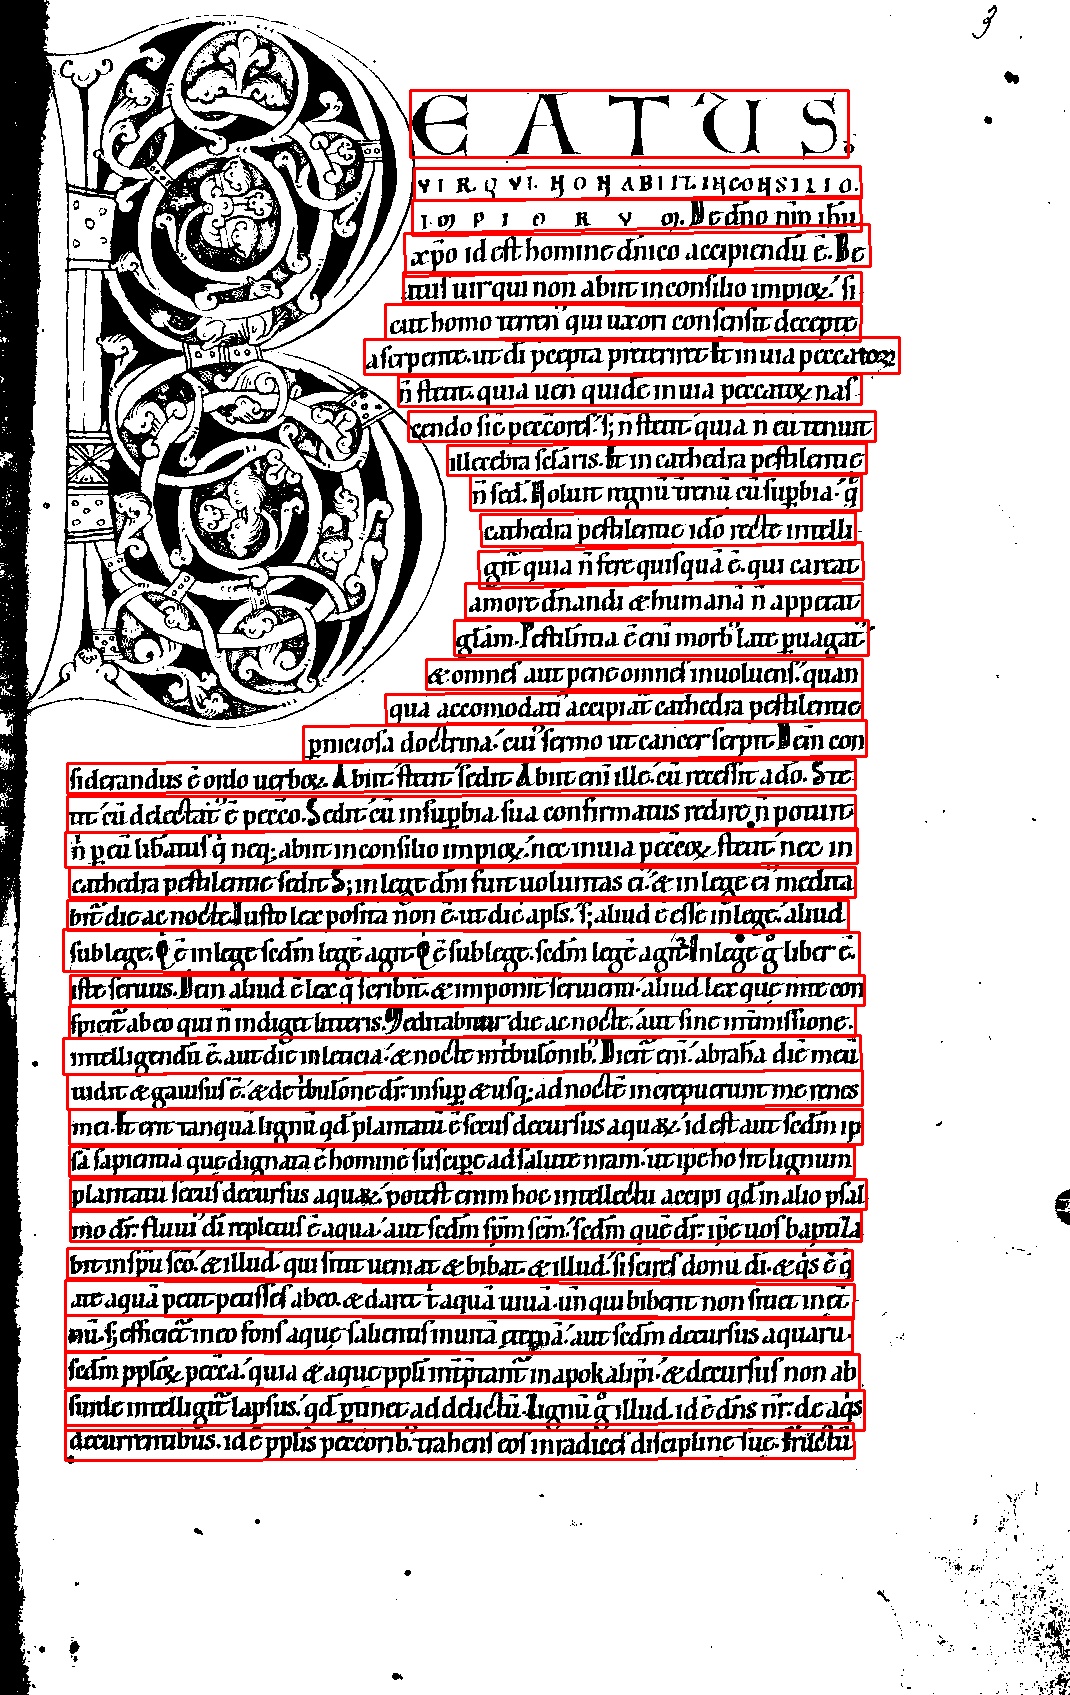 3
BEATUS.
VIR. QVI. NON ABIIT. IN CONSILIO.
IMPIORVM. De dn̄o nr̄o ihū
xp̄o id est homine dn̄ico accipiendū ē. Be
atus uir qui non abiit in consilio impioꝝ. si
cut homo terren᾽ qui uxori consensit decepte
a serpente. ut di p̄cepta preteriret. Et in uia peccatorꝝ
n̄ stetit. quia uen quidē in uia peccatoꝝ nas
cendo sic peccores. s; n̄ stetit quia n̄ eū tenuit
illecebra sclaris. Et in cathedra pestilentie
n̄ sed. Noluit regnū terrenū cū sup̱bia. q̄
cathedra pestilentie ido recte intelli
git quia n̄ fere quisquā ē. qui careat
amore dn̄andi & humanā n̄ appetat
glām. Pestilentia ē eni morb᾽ late p̱uagat᾽
& omnes aut pene omnes inuoluens. quan
quā accomodati᾽ accipiat cathedra pestilentie
p̱niciosa doctrina. cui᾽ sermo ut cancer serpit. Dein con
siderandus ē ordo uerboꝝ. Abiit. stetit. sedit. Abiit eni ille. cū recessit a dō. Ste
tit. cū delectat᾽ ē pecco. Sedit. cū in sup̱bia sua confirmatus redire n̄ potuit.
n̄ p̱ eū liberatus q̄ neq; abiit in consilio impioꝝ. nec in uia peccoꝝ stetit. nec in
cathedra pestilentie sedit. S; in lege dn̄i fuit uoluntas ei᾽. & in lege ei᾽ medita
bit᾽ die ac nocte. Iusto lex posita non ē. ut dic apls. s; aliud ē esse in lege. aliud
sub lege. Q ē in lege scdm legē agit. Q ē sub lege. scdm legē agit᾽. In lege g̊ liber ē.
iste seruus. Dein aliud ē lex q̄ scribit᾽ & imponit᾽ seruienti. aliud lex que mte con
spicit᾽ ab eo qui n̄ indiget litteris. Meditabitur die ac nocte. aut sine intmissione.
intelligendū ē. aut die in leticia. & nocte in tribulonib᾽. Dicit᾽ eni. abrahā diē meū
uidit & gauisus ē. & de tribulone dr. insup̱ & usq; ad noctē increpuerunt me renes
mei. Et erit tanquā lignū qd plantatū ē secus decursus aquaꝝ. id est aut scdm ip
sā sapientiā que dignata ē hominē suscip̱e ad salutē nram. ut ipe ho sit lignum
plantatū secus decursus aquaꝝ. potest enim hoc intellectu accipi qd in alio psal
mo dr. fluui᾽ di repletus ē aqua. aut scdm spm scm. scdm quē dr. ipe uos baptiza
bit in spu sco. & illud. qui sitit ueniat & bibat. & illud. si scires donū di. & q̄s ē q̄
a te aquā petit petisses ab eo. & daret t̄ aquā uiuā. un̄ qui biberit non sitiet in et
nū. s; efficiet᾽ in eo fons aque salientis in uitā eternā. aut scdm decursus aquaru.
scdm pploꝝ pecca. quia & aque ppli intptant᾽ in apokalipsi. & decursus non ab
surde intelligit᾽ lapsus. qd p̱tinet ad delictū. Lignū g̊ illud. id ē dn̄s nr. de aq̄s
decurrentibus. id ē pplis peccorib᾽. trahens eos in radices discipline sue. Fructū